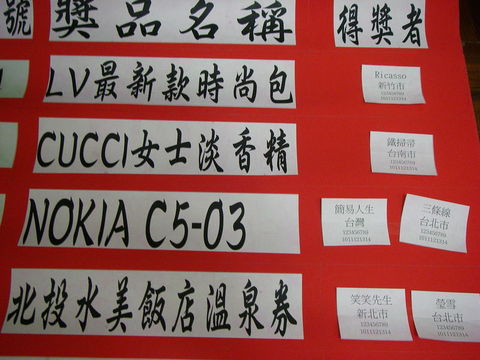 號 獎品名稱 得獎者
LV最新款時尚包
Ricasso
新竹市
123456789
1011121314
CUCCI女士淡香精
鐵掃帚
台南市
123456789
1011121314
NOKIA C5-03
簡易人生
台灣
123456789
1011121314
三條線
台北市
123456789
1011121314
北投水美飯店溫泉券
笑笑先生
新北市
123456789
1011121314
瑩雪
台北市
123456789
1011121314